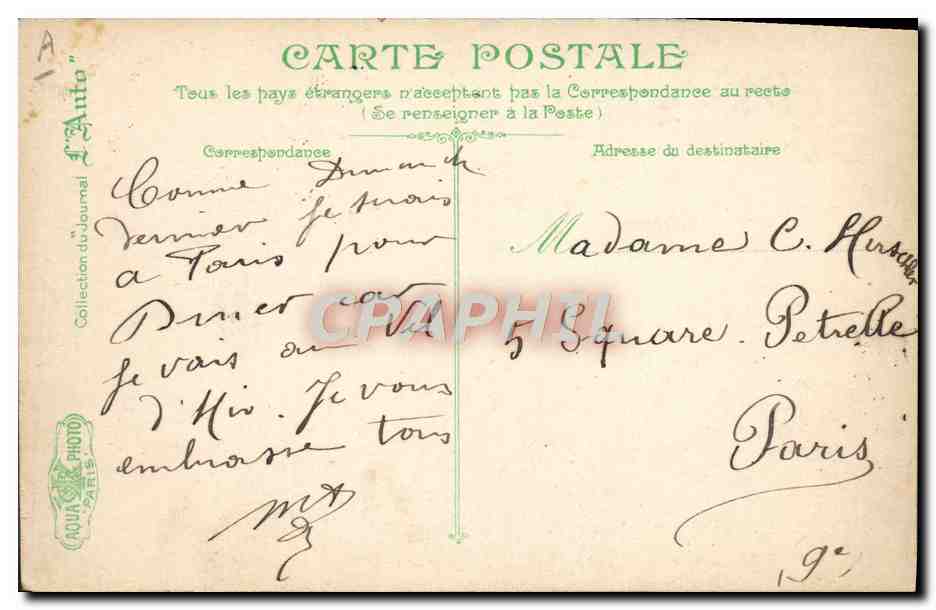 A
CARTE POSTALE
Tous les pays étrangers n'acceptent pas la Correspondance au recto
(Se renseigner à la Poste)
Correspondance
Adresse du destinataire
Collection du Journal "L'Auto"
AQUA PHOTO
PARIS
Comme Dimanch
dernier je serais
a Paris pour
Diner car
je vais au Vel
d'Hiv. Je vous
embrasse tous
Madame C. Hirschler
5 Square Petrelle
Paris
9e
CPAPHIL